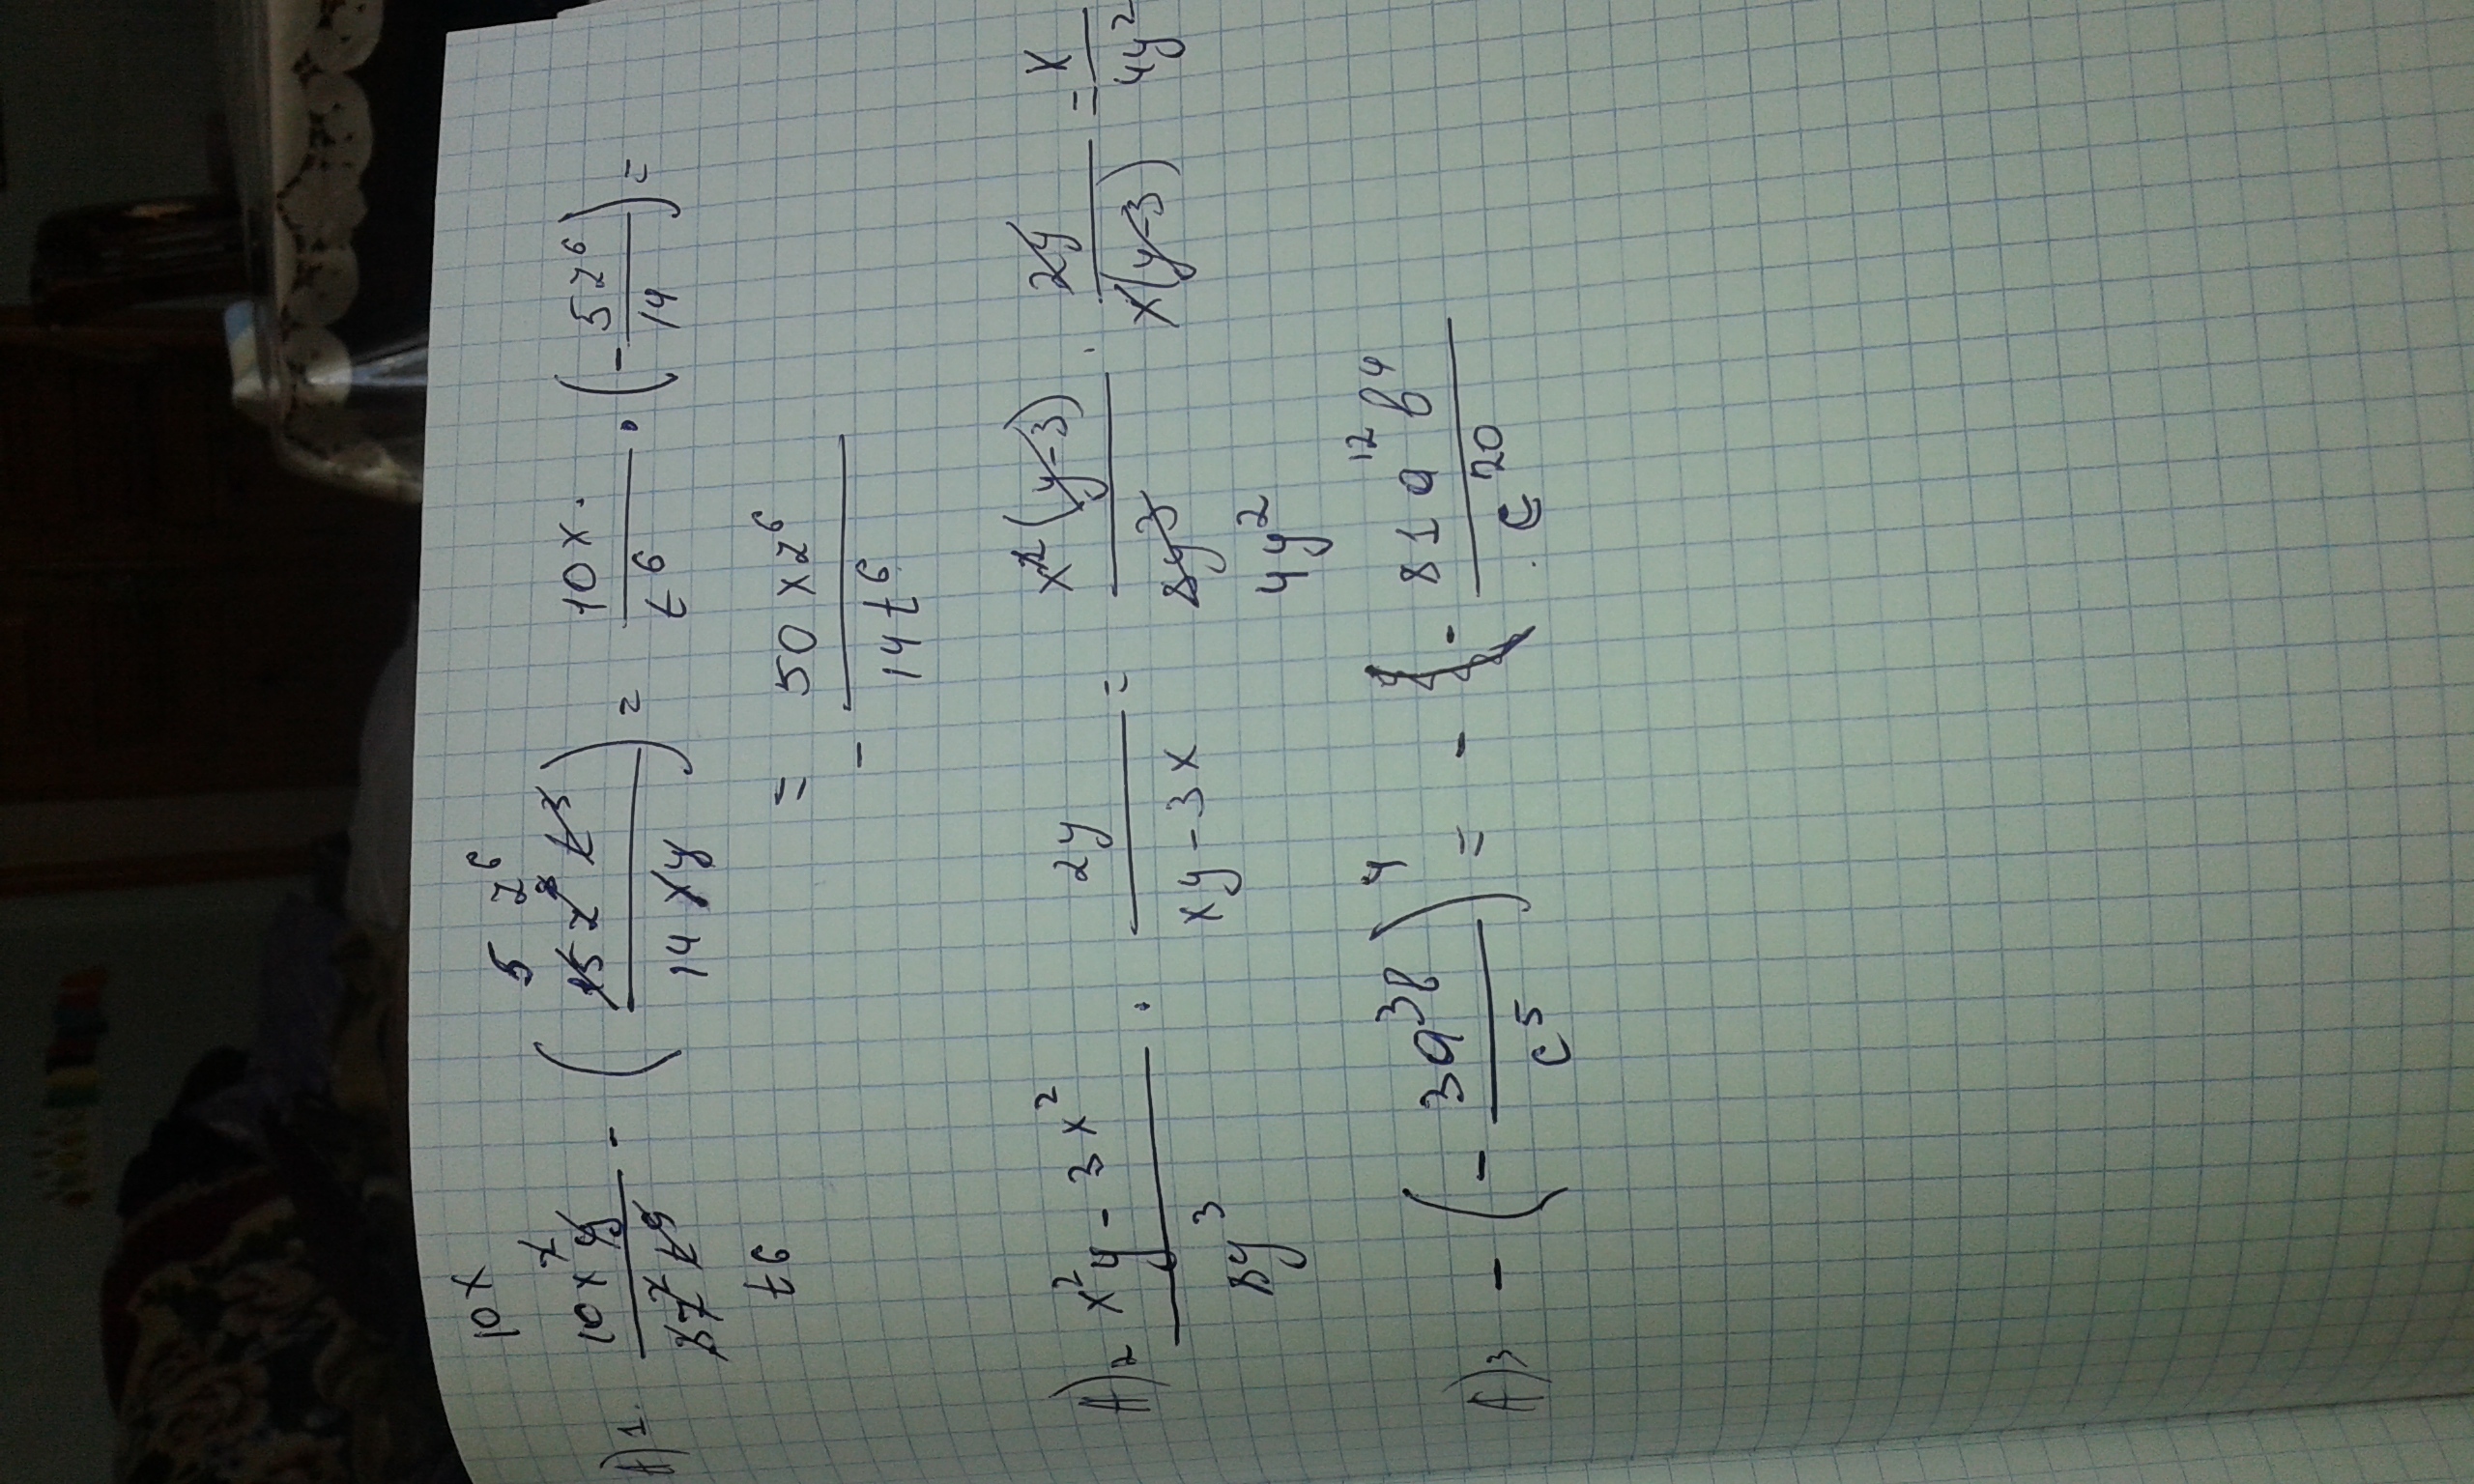 10x 5 z⁶
A)1. 10x²y / 3z²t⁹ · (- 15z⁸t³ / 14xy) = 10x / t⁶ · (- 5z⁶ / 14) =
t⁶
= - 50xz⁶ / 14t⁶
A)2 x²y - 3x² / 8y³ · 2y / xy - 3x = x²(y-3) / 8y³ · 2y / x(y-3) = x / 4y²
4y²
A)3 - (- 3a³b / c⁵)⁴ = - 81a¹²b⁴ / c²⁰